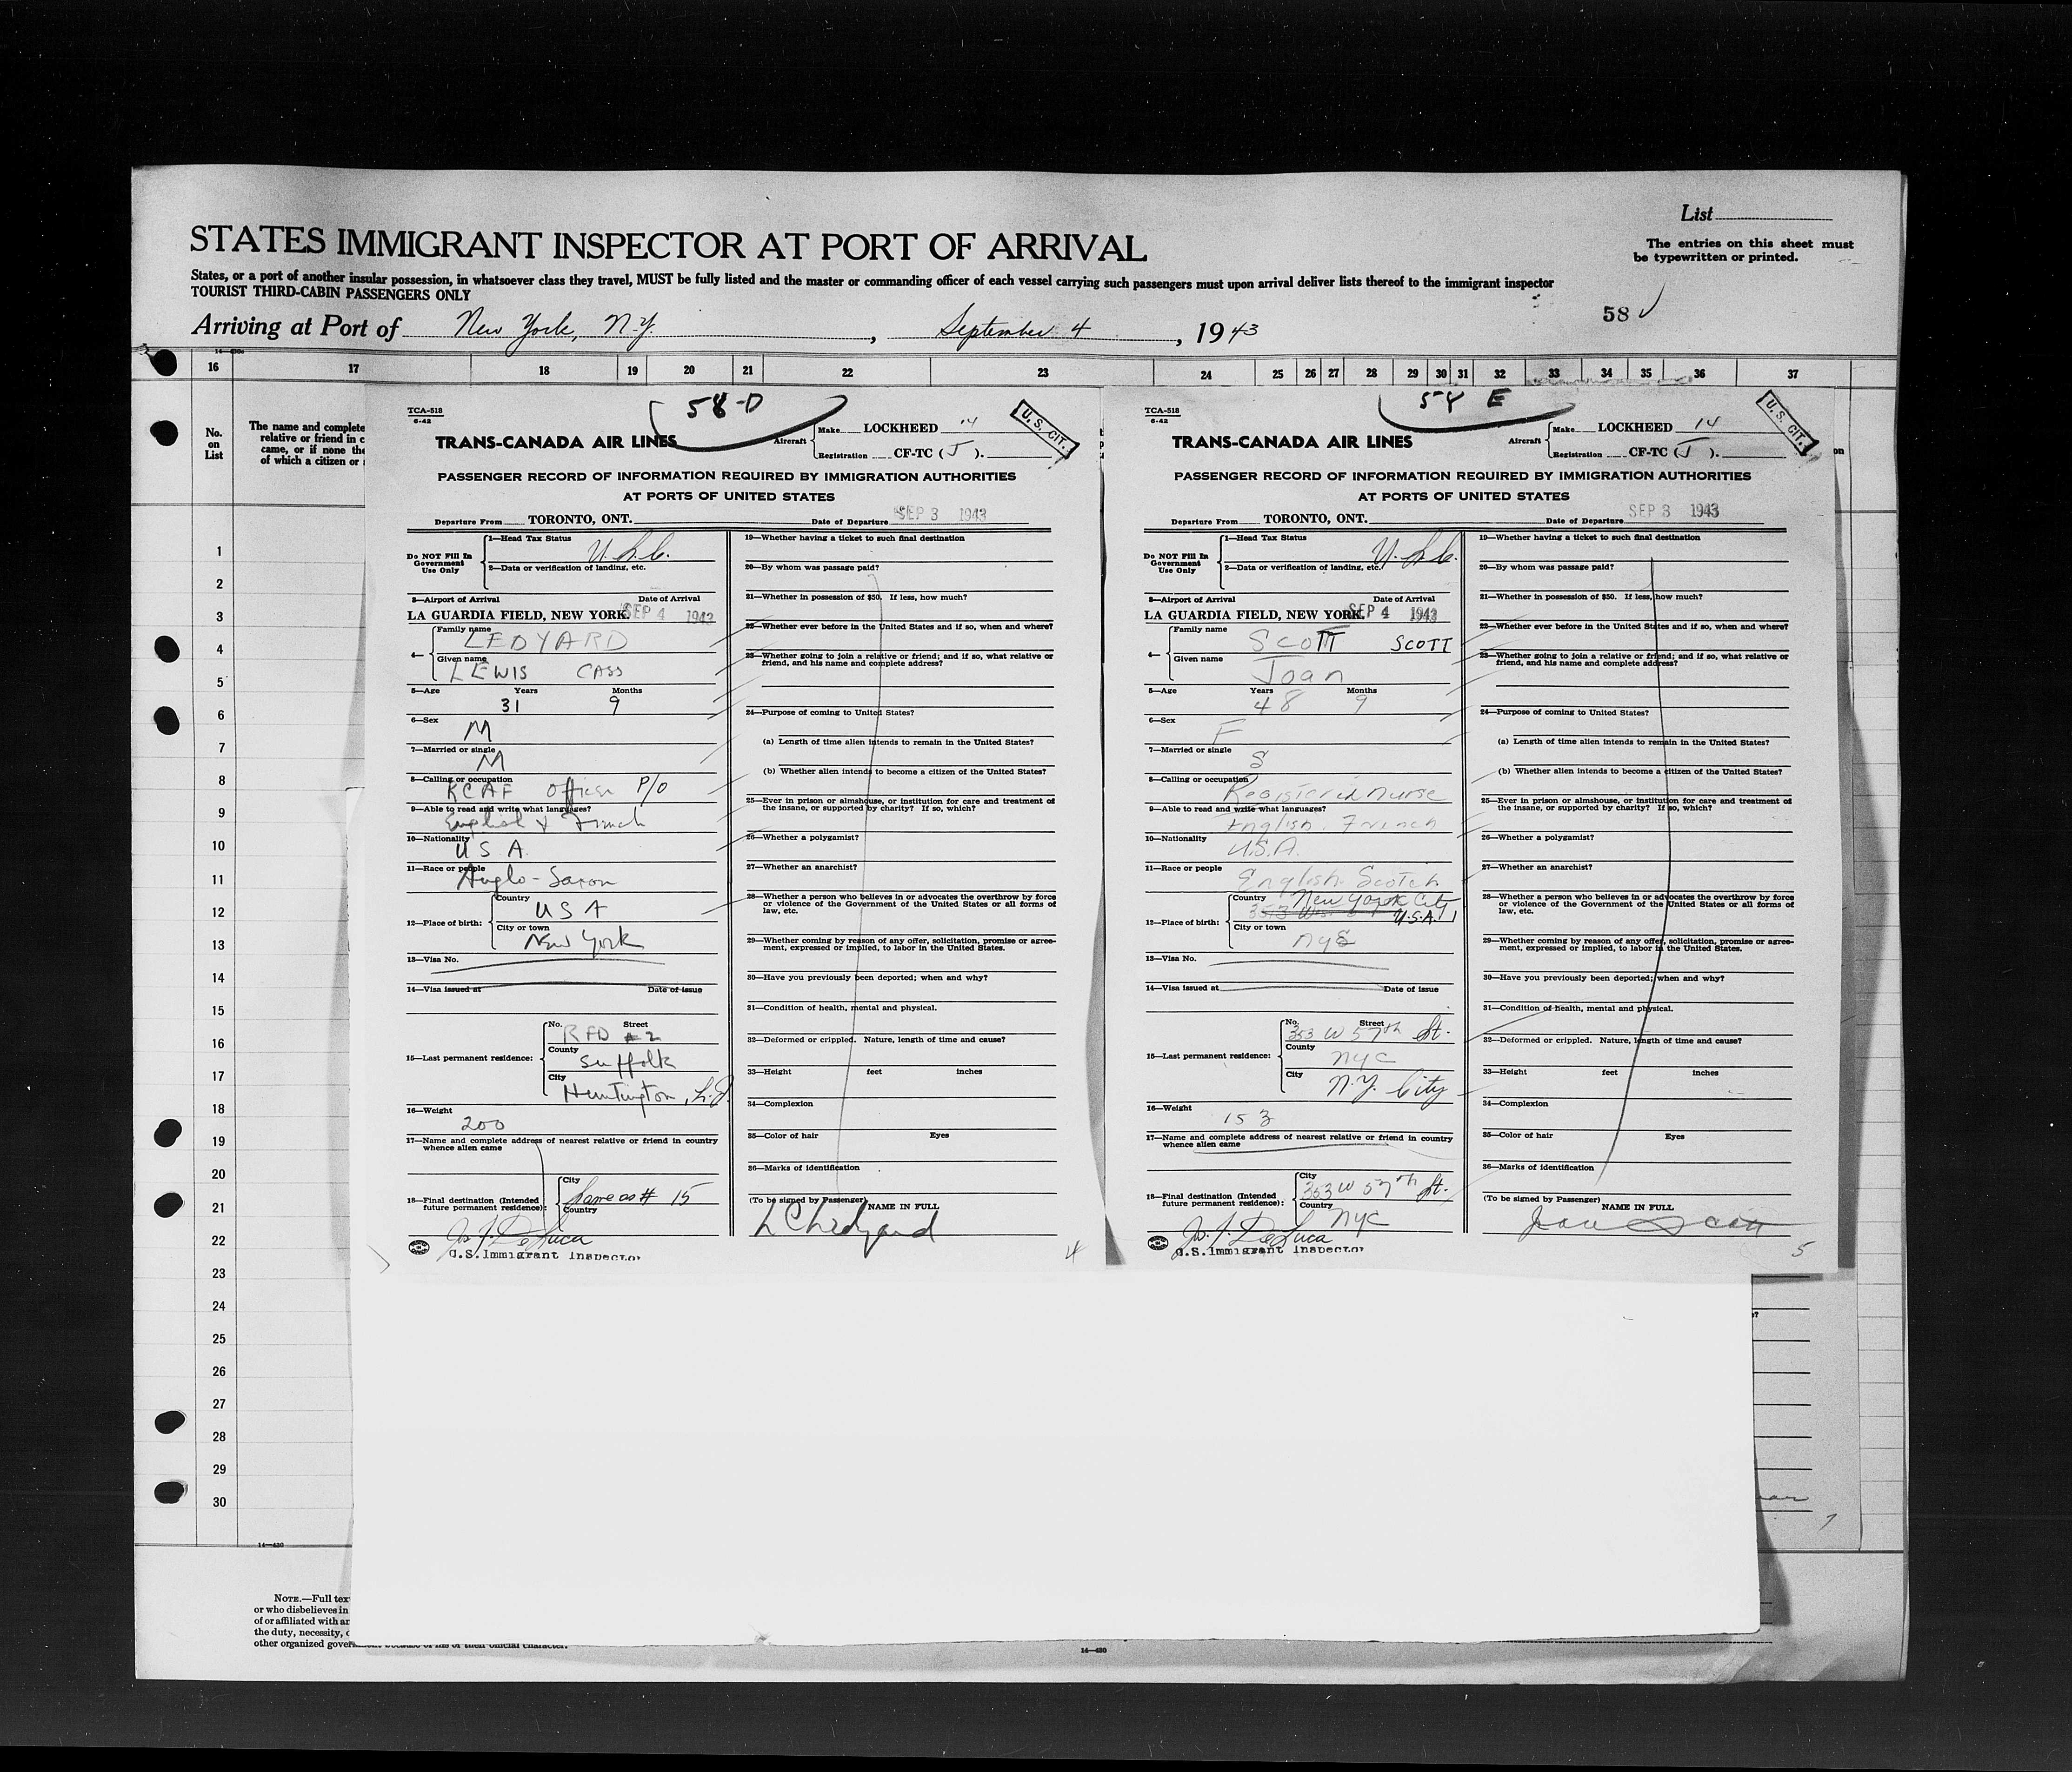 List
STATES IMMIGRANT INSPECTOR AT PORT OF ARRIVAL
The entries on this sheet must
be typewritten or printed.
States, or a port of another insular possession, in whatsoever class they travel, MUST be fully listed and the master or commanding officer of each vessel carrying such passengers must upon arrival deliver lists thereof to the immigrant inspector
TOURIST THIRD-CABIN PASSENGERS ONLY
58
Arriving at Port of New York, N.Y. , September 4 , 1943
16 17 18 19 20 21 22 23 24 25 26 27 28 29 30 31 32 33 34 35 36 37
No.
on
List
The name and complete
relative or friend in c
came, or if none the
of which a citizen or
1
2
3
4
5
6
7
8
9
10
11
12
13
14
15
16
17
18
19
20
21
22
23
24
25
26
27
28
29
30
58-D
TCA-518
6-42
TRANS-CANADA AIR LINES
Aircraft
Make LOCKHEED 14
Registration CF-TC ( J ).
U.S. CIT.
PASSENGER RECORD OF INFORMATION REQUIRED BY IMMIGRATION AUTHORITIES
AT PORTS OF UNITED STATES
Departure From TORONTO, ONT. Date of Departure SEP 3 1943
Do NOT Fill In
Government
Use Only
1—Head Tax Status
2—Data or verification of landing, etc.
3—Airport of Arrival Date of Arrival
LA GUARDIA FIELD, NEW YORK. SEP 4 1943
4—
Family name
LEDYARD
Given name
LEWIS CASS
5—Age Years Months
31 9
6—Sex
M
7—Married or single
M
8—Calling or occupation
RCAF Officer P/O
9—Able to read and write what languages?
English & French
10—Nationality
U S A.
11—Race or people
Anglo-Saxon
12—Place of birth:
Country
USA
City or town
New York
13—Visa No.
14—Visa issued at Date of issue
15—Last permanent residence:
No. Street
RFD #2
County
Suffolk
City
Huntington, L.I.
16—Weight
200
17—Name and complete address of nearest relative or friend in country
whence alien came
18—Final destination (Intended
future permanent residence):
City
Same as # 15
Country
Jos. J. DeLuca
U.S. Immigrant Inspector
19—Whether having a ticket to such final destination
20—By whom was passage paid?
21—Whether in possession of $50. If less, how much?
22—Whether ever before in the United States and if so, when and where?
23—Whether going to join a relative or friend; and if so, what relative or
friend, and his name and complete address?
24—Purpose of coming to United States?
(a) Length of time alien intends to remain in the United States?
(b) Whether alien intends to become a citizen of the United States?
25—Ever in prison or almshouse, or institution for care and treatment of
the insane, or supported by charity? If so, which?
26—Whether a polygamist?
27—Whether an anarchist?
28—Whether a person who believes in or advocates the overthrow by force
or violence of the Government of the United States or all forms of
law, etc.
29—Whether coming by reason of any offer, solicitation, promise or agree-
ment, expressed or implied, to labor in the United States.
30—Have you previously been deported; when and why?
31—Condition of health, mental and physical.
32—Deformed or crippled. Nature, length of time and cause?
33—Height feet inches
34—Complexion
35—Color of hair Eyes
36—Marks of identification
(To be signed by Passenger)
NAME IN FULL
L C Ledyard
4
58 E
TCA-518
6-42
TRANS-CANADA AIR LINES
Aircraft
Make LOCKHEED 14
Registration CF-TC ( J ).
U.S. CIT.
PASSENGER RECORD OF INFORMATION REQUIRED BY IMMIGRATION AUTHORITIES
AT PORTS OF UNITED STATES
Departure From TORONTO, ONT. Date of Departure SEP 3 1943
Do NOT Fill In
Government
Use Only
1—Head Tax Status
2—Data or verification of landing, etc.
3—Airport of Arrival Date of Arrival
LA GUARDIA FIELD, NEW YORK. SEP 4 1943
4—
Family name
SCOTT SCOTT
Given name
Joan
5—Age Years Months
48 9
6—Sex
F
7—Married or single
S
8—Calling or occupation
Registered nurse
9—Able to read and write what languages?
English French
10—Nationality
U.S.A.
11—Race or people
English Scotch
12—Place of birth:
Country
New York City
U.S.A.
City or town
13—Visa No.
14—Visa issued at Date of issue
15—Last permanent residence:
No. Street
353 W 57th St.
County
NYC
City
N.Y. City
16—Weight
153
17—Name and complete address of nearest relative or friend in country
whence alien came
18—Final destination (Intended
future permanent residence):
City
353 W 57th St.
Country
NYC
Jos. J. DeLuca
U.S. Immigrant Inspector
19—Whether having a ticket to such final destination
20—By whom was passage paid?
21—Whether in possession of $50. If less, how much?
22—Whether ever before in the United States and if so, when and where?
23—Whether going to join a relative or friend; and if so, what relative or
friend, and his name and complete address?
24—Purpose of coming to United States?
(a) Length of time alien intends to remain in the United States?
(b) Whether alien intends to become a citizen of the United States?
25—Ever in prison or almshouse, or institution for care and treatment of
the insane, or supported by charity? If so, which?
26—Whether a polygamist?
27—Whether an anarchist?
28—Whether a person who believes in or advocates the overthrow by force
or violence of the Government of the United States or all forms of
law, etc.
29—Whether coming by reason of any offer, solicitation, promise or agree-
ment, expressed or implied, to labor in the United States.
30—Have you previously been deported; when and why?
31—Condition of health, mental and physical.
32—Deformed or crippled. Nature, length of time and cause?
33—Height feet inches
34—Complexion
35—Color of hair Eyes
36—Marks of identification
(To be signed by Passenger)
NAME IN FULL
Joan Scott
5
14—430
NOTE.—Full tex
or who disbelieves in
of or affiliated with an
the duty, necessity, o
other organized government because of his or their official character.
14—430